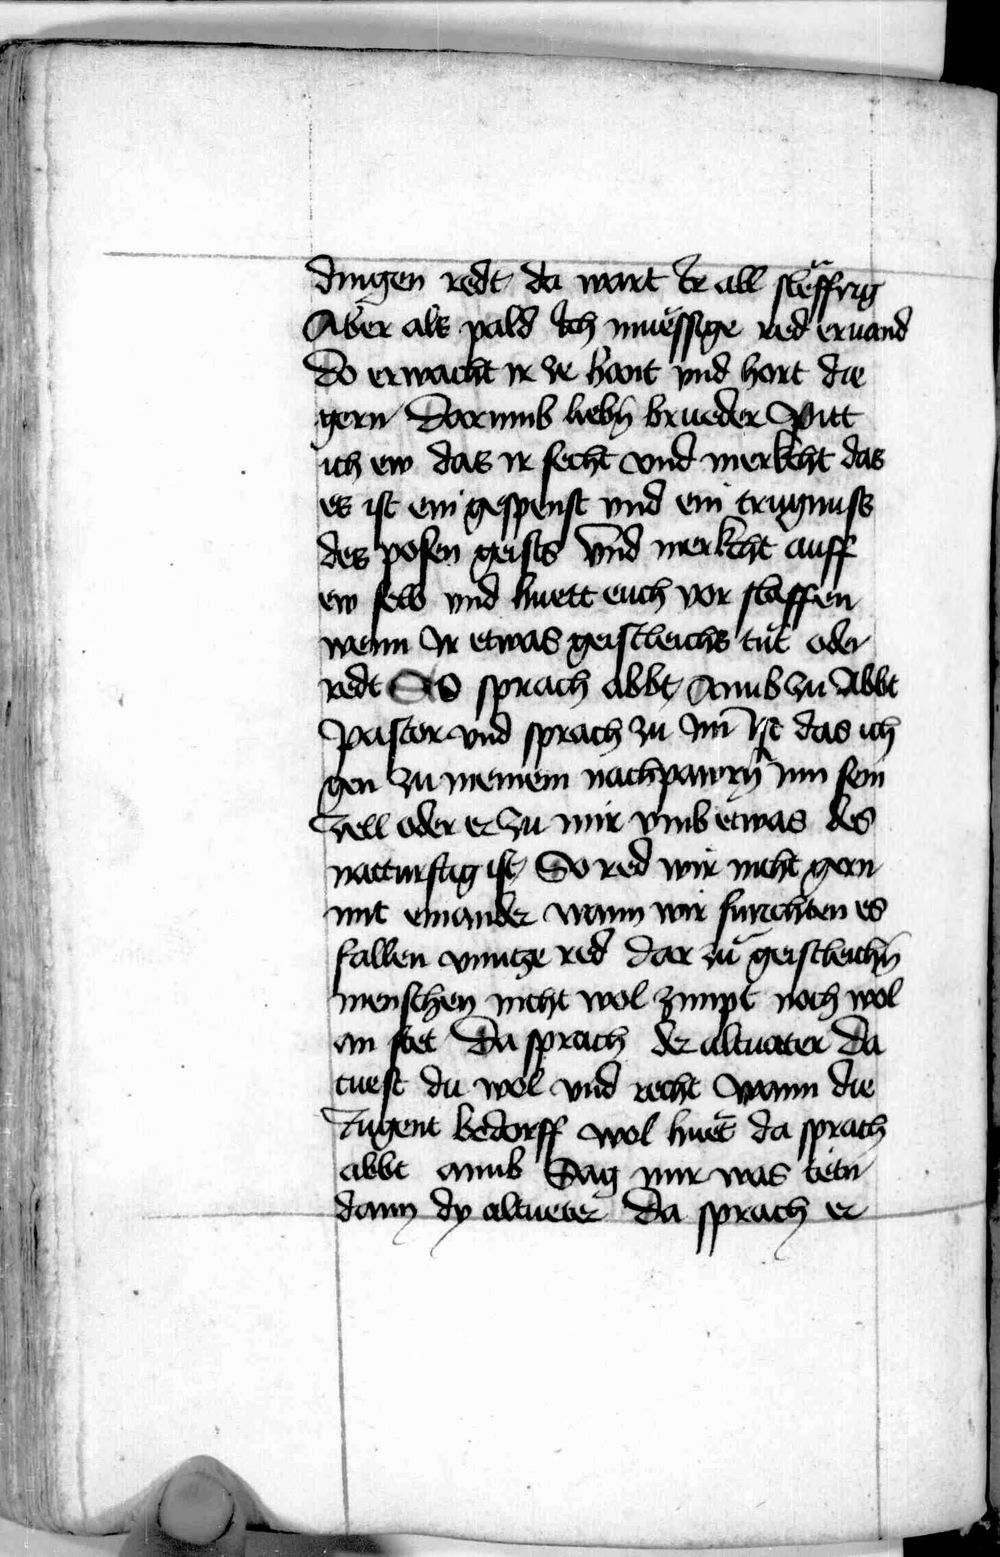 dingen redt da wart Ir all sleffrig
Aber als pald Ich muessige red ervand
Do erwacht ir vr hort die
gern Darumb liebn brueder Pitt
ich ew das ir secht vnd merkcht das
es ist ein gespenst vnd ein trugnuss
des posen geists Vnd merkcht auff
ew selb vnd huett euch vor slaffen
wenn Ir etwas geistleichs tut oder
redt So sprach abbt Anub zu Abbt
Pastor vnd sprach zu Im Ist das ich
gen zu meinem nachpawrn um sein
Zell oder er zu mir vmb etwas des
natturftig ist So red wir nicht gern
mit einander wann wir furchten es
fallen vnnutze red dar zu geistleichn
menschen nicht wol zimpt noch wol
an stet Da sprach der altuater Da
tuest du wol vnd recht Wann die
Tugent bedorff wol huet da sprach
abbt anub Sag mir was teten
dann dy altueter Da sprach er